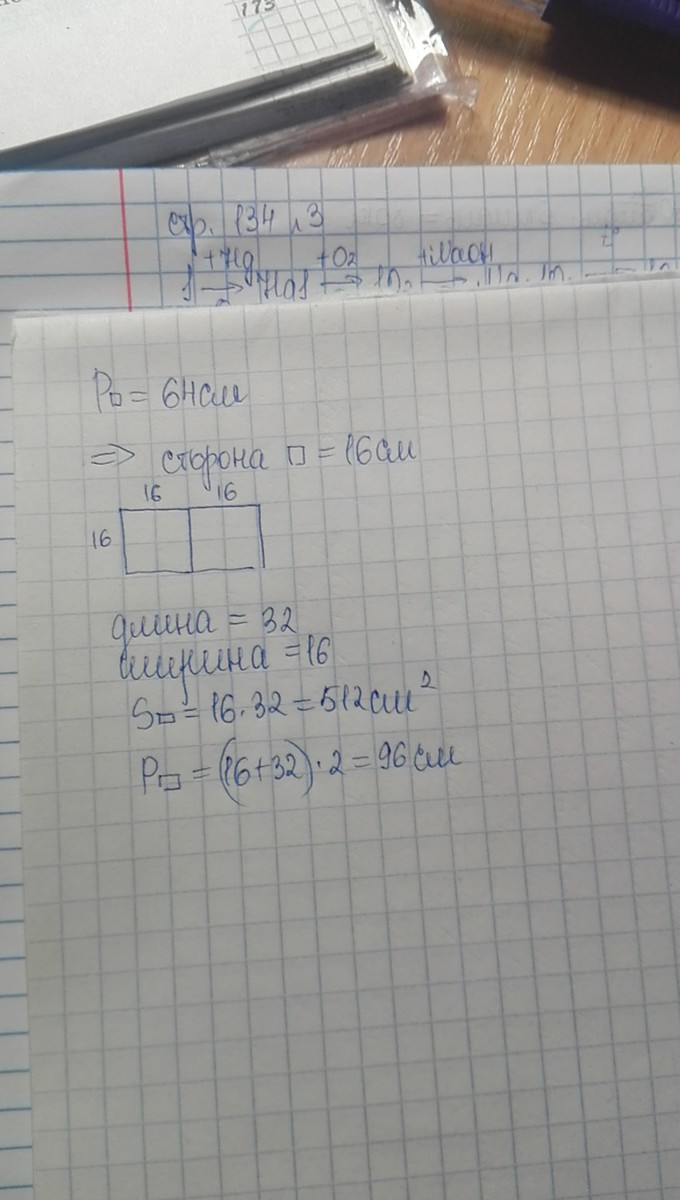 173
стр. 134 
+Hg +O2 +NaOH
P□ = 64см
=> сторона □ = 16см
16 16
16
длина = 32
ширина = 16
S▭ = 16·32 = 512см²
P▭ = (16+32)·2 = 96см